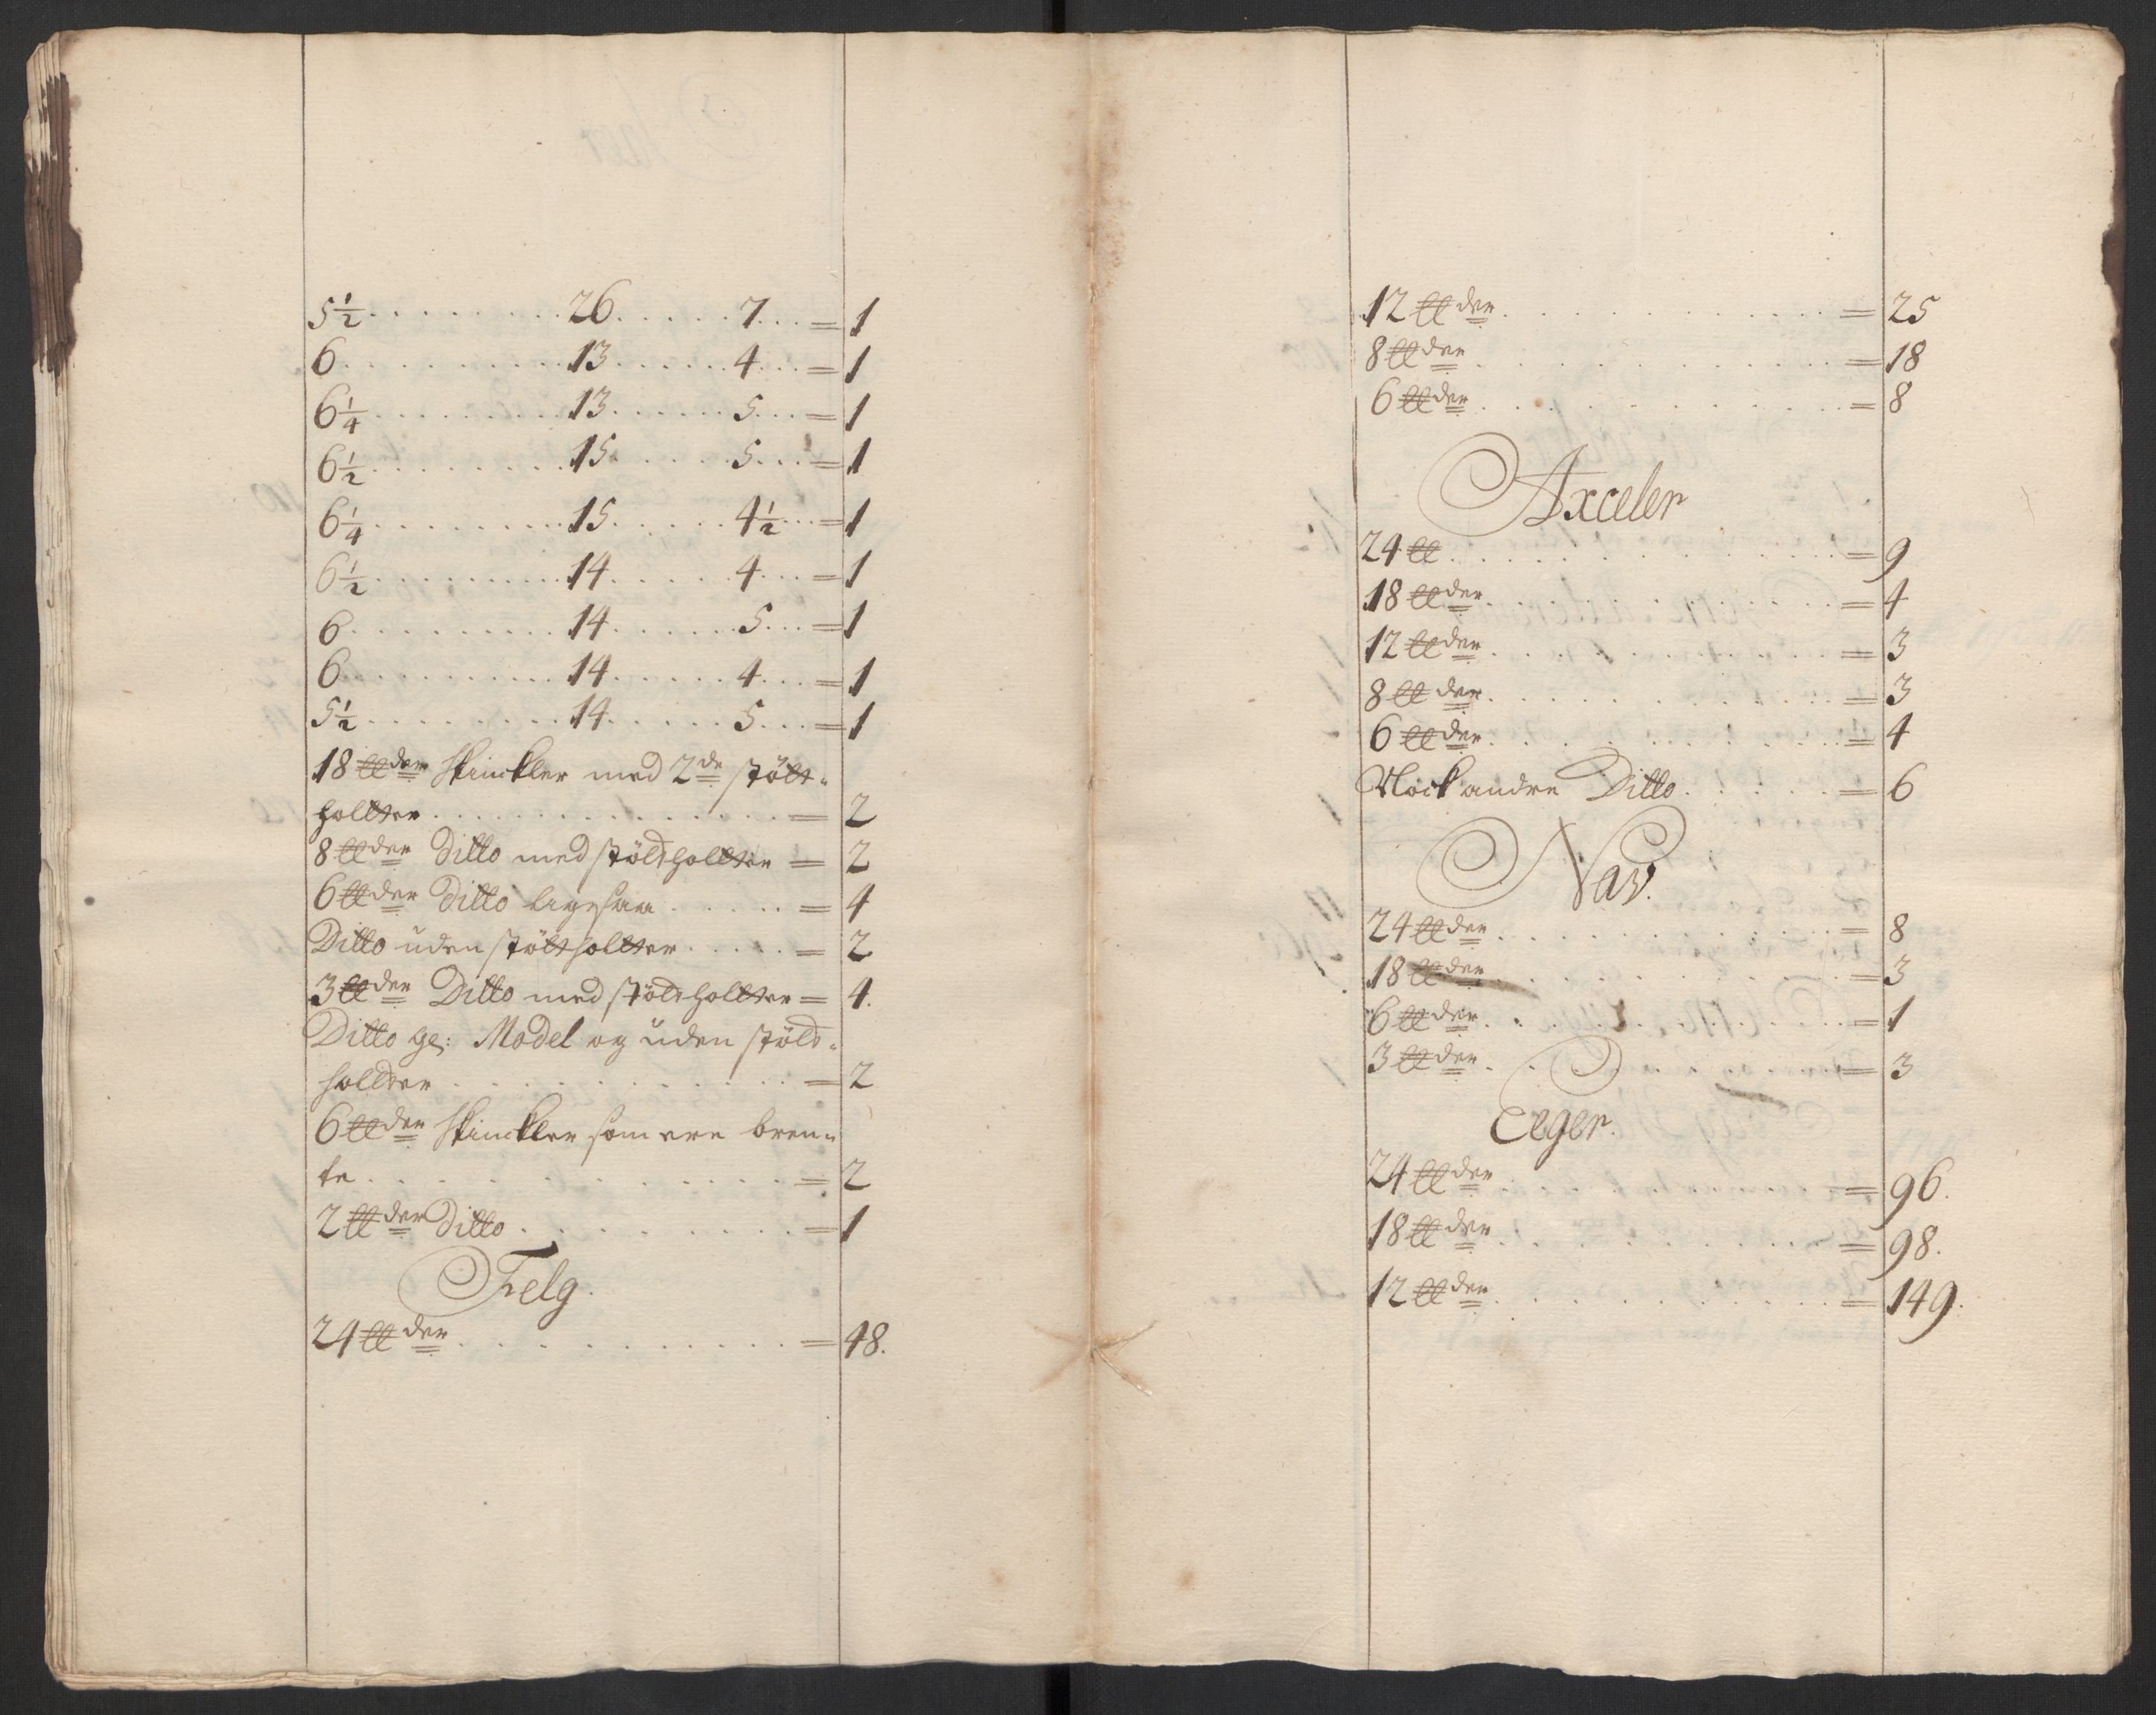 5½ . . . . . . . . 26 . . . . . 7 . . . = 1
6 . . . . . . . . . 13 . . . . . . 4 . . . = 1
6¼ . . . . . . . . . 13 . . . . . . 5 . . . = 1
6½ . . . . . . . . 15 . . . . . 5 . . . = 1
6¼ . . . . . . . . 15 . . . . . 4½ . . . = 1
6½ . . . . . . . . . 14 . . . . . 4 . . . = 1
6 . . . . . . . . . 14 . . . . . . 5 . . . = 1
6 . . . . . . . . . 14 . . . . . 4 . . . = 1
5½ . . . . . . . . 14 . . . . . 5 . . . = 1
18 ℔der Skinckler med 2de stölt-
hollter . . . . . . . . . . . . = 2
8 ℔der Ditto med stöldhollter = 2
6 ℔der Ditto ligesaa . . . . . = 4
Ditto uden stöltholtter . . . . . = 2
3 ℔der Ditto med stöldhollter = 4.
Ditto ge: Model og uden stöld-
holdter . . . . . . . . . . = 2
6 ℔der Skinckler som ere bren-
te . . . . . . . . . . . = 2
2 ℔der Ditto . . . . . . . . = 1
Felg.
24 ℔der . . . . . . . . . . = 48.
12 ℔der . . . . . . . . . . . = 25
8 ℔der . . . . . . . . . . . = 18
6 ℔der . . . . . . . . . . . = 8
Axceler
24 ℔ . . . . . . . . . . . = 9
18 ℔der . . . . . . . . . . . = 4
12 ℔der . . . . . . . . . . . = 3
8 ℔der . . . . . . . . . . . = 3
6 ℔der . . . . . . . . . . . = 4
Nock andre Ditto . . . . . = 6
Nav.
24 ℔der . . . . . . . . . . . = 8
18 ℔der . . . . . . . . . . . = 3
6 ℔der . . . . . . . . . . . = 1
3 ℔der . . . . . . . . . . . = 3
Eeger.
24 ℔der . . . . . . . . . . = 96.
18 ℔der . . . . . . . . . . = 98.
12 ℔der . . . . . . . . . . = 149.